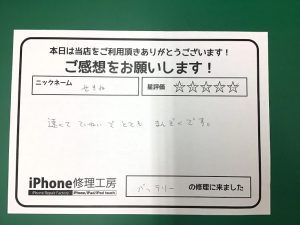 本日は当店をご利用頂きありがとうございます！
ご感想をお願いします！
ニックネーム
せきね
星評価 ☆☆☆☆☆
速くて ていねいで とても まんぞくです。
iPhone修理工房
iPhone Repair Factory iPhone/iPad/iPod touch
バッテリー の修理に来ました